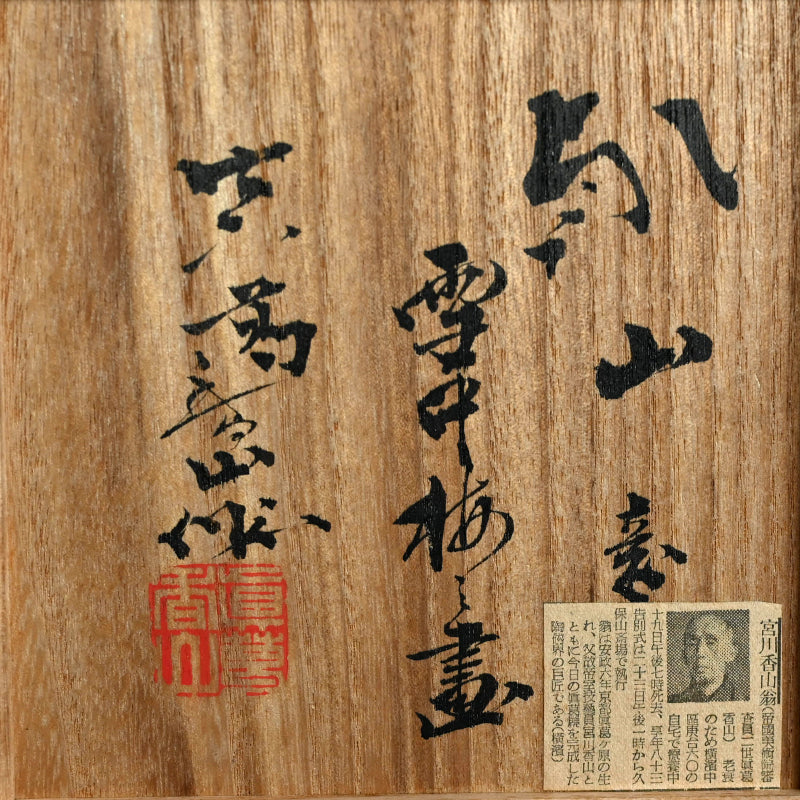 乾山意
雪中梅之畫
真葛香山作
眞葛香山
宮川香山翁(帝國美術院審
査員二世眞葛
香山) 老衰
のため横濱中
區庚台六〇の
自宅で療養中
十九日午後七時死去、享年八十三
告別式は二十三日午後一時から久
保山斎場で執行
翁は安政六年京都眞葛ヶ原の生
れ、父故帝室技藝員宮川香山と
ともに今日の眞葛燒を完成した
陶藝界の巨匠である(横濱)